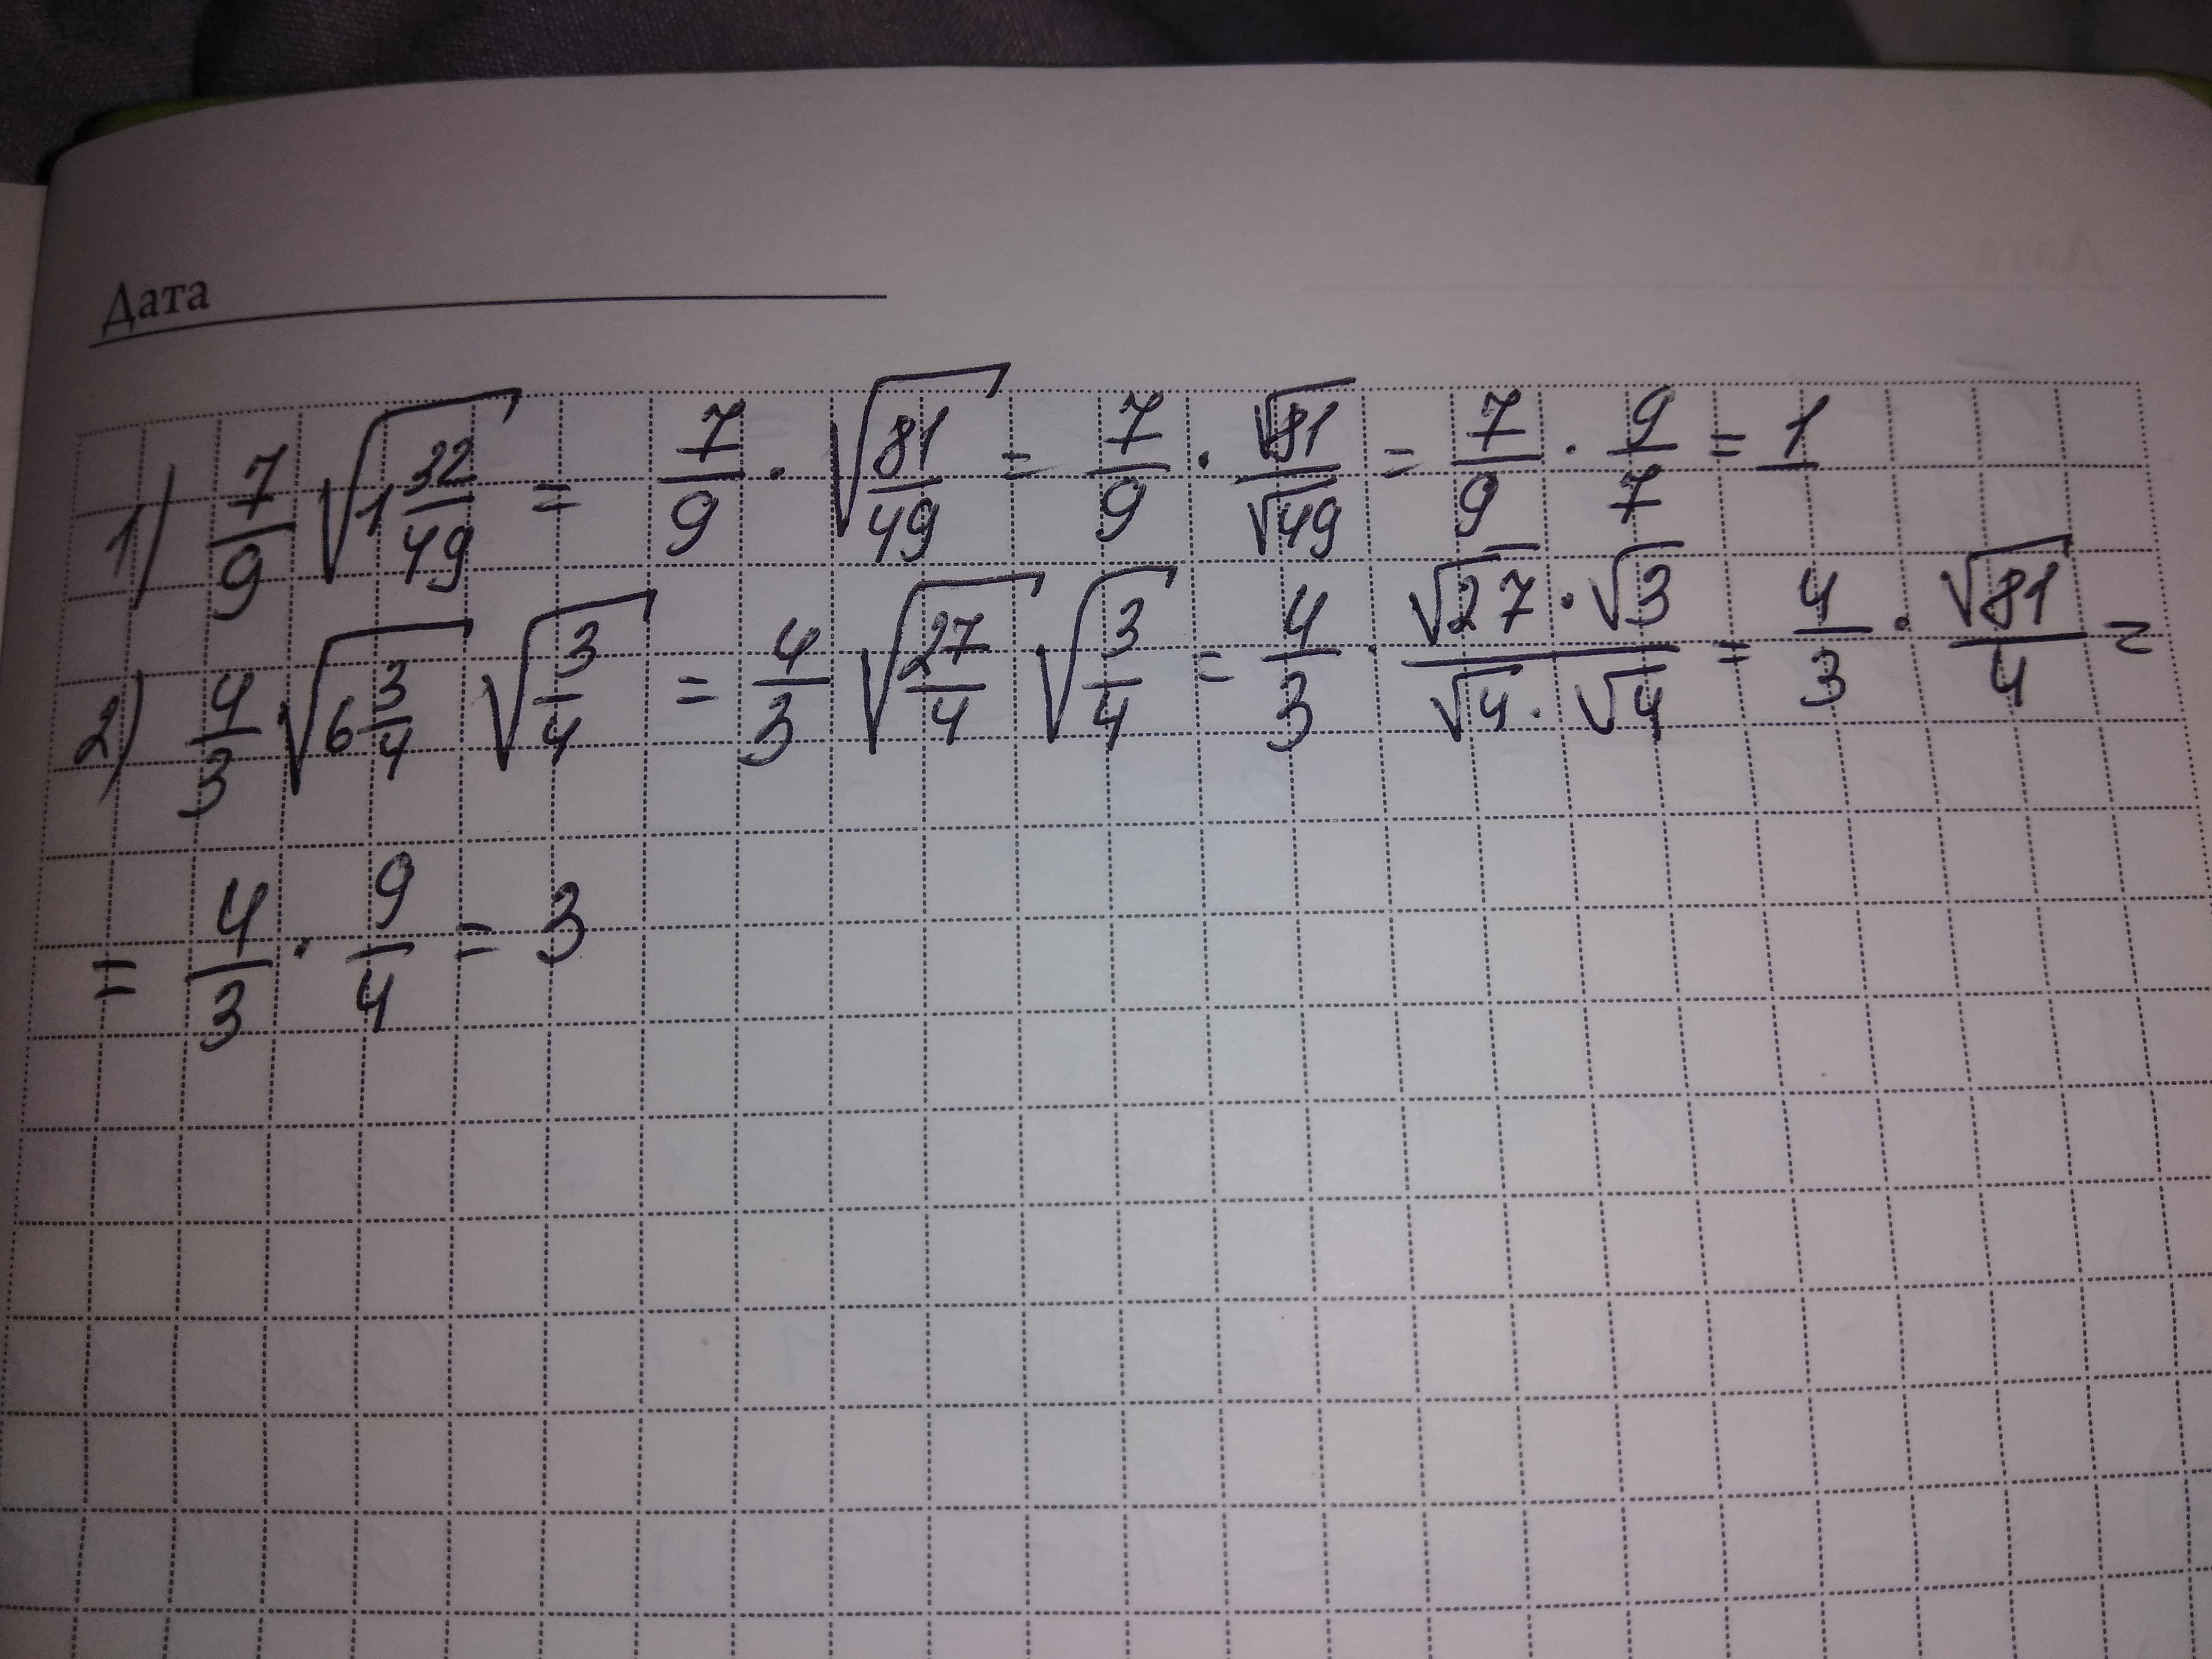 Дата
1) 7/9 √(1 32/49) = 7/9 · √(81/49) = 7/9 · √81/√49 = 7/9 · 9/7 = 1
2) 4/3 √(6 3/4) √(3/4) = 4/3 √(27/4) √(3/4) = 4/3 · (√27 · √3)/(√4 · √4) = 4/3 · √81/4 =
= 4/3 · 9/4 = 3